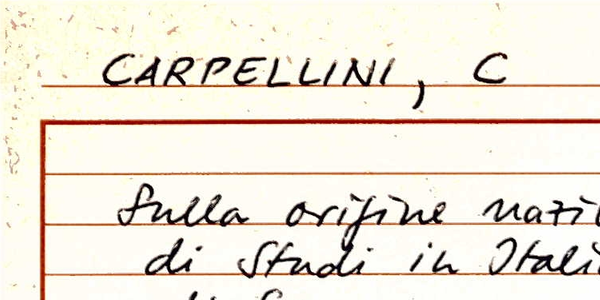 CARPELLINI, C
Sulla origine nazi
di Studi in Itali